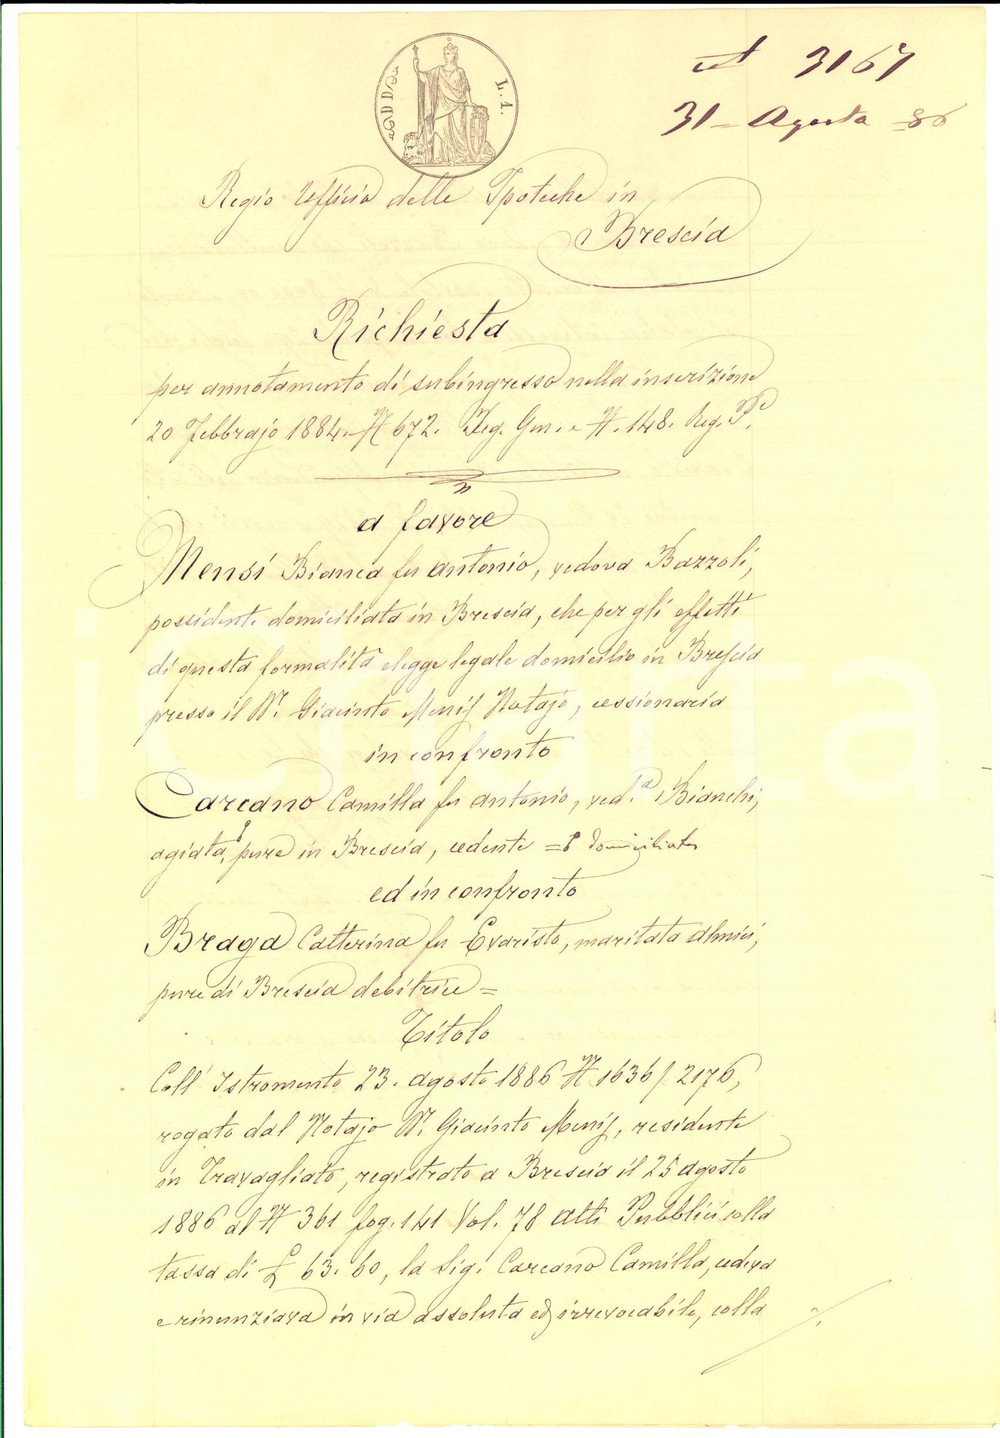 3167
31 - Agosto - 86
L. 1.
Regio Ufficio delle Ipoteche in
Brescia
Richiesta
per annotamento di subingresso nella inscrizione
20 Febbrajo 1884. N 672. Reg. Gen. e N. 148. Reg. P.e
a favore
Mensi Bianca fu Antonio, vedova Bazzoli,
possidente domiciliata in Brescia, che per gli effetti
di questa formalità elegge legale domicilio in Brescia
presso il Dr. Giacinto Notajo, cessionaria
in confronto
Carcano Camilla fu Antonio, ved.a Bianchi,
agiata, pure in Brescia, cedente = domiciliata
ed in confronto
Braga Catterina fu Evaristo, maritata Almici,
pure di Brescia debitrice =
Titolo
Coll' Istromento 23. agosto 1886 N 1636/2176,
rogato dal Notajo Dr. Giacinto residente
in Travagliato, registrato a Brescia il 25 agosto
1886 al N 361 fog. 141 Vol. 78 Atti Pubblici colla
tassa di £ 63. 60, la Sig. Carcano Camilla, cedeva
e rinunziava in via assoluta ed irrevocabile, colla